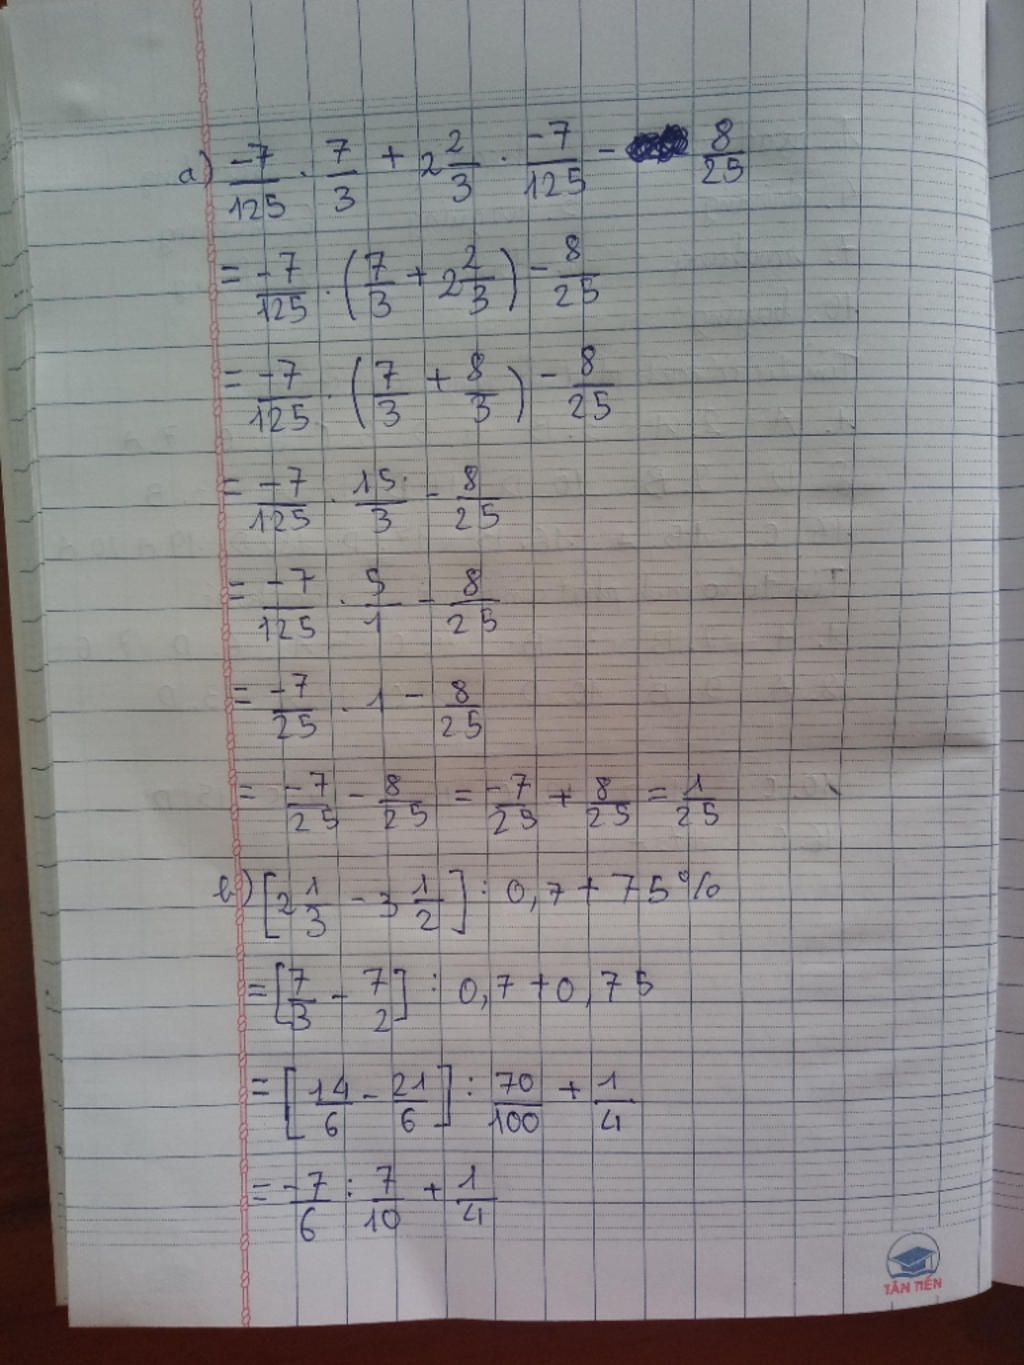 a) -7/125 . 7/3 + 2 2/3 . -7/125 - 8/25
= -7/125 . (7/3 + 2 2/3) - 8/25
= -7/125 . (7/3 + 8/3) - 8/25
= -7/125 . 15/3 - 8/25
= -7/125 . 5/1 - 8/25
= -7/25 . 1 - 8/25
= -7/25 - 8/25 = -7/25 + 8/25 = 1/25
b) [2 1/3 - 3 1/2] : 0,7 + 75%
= [7/3 - 7/2] : 0,7 + 0,75
= [14/6 - 21/6] : 70/100 + 1/4
= -7/6 : 7/10 + 1/4
TÂN TIẾN